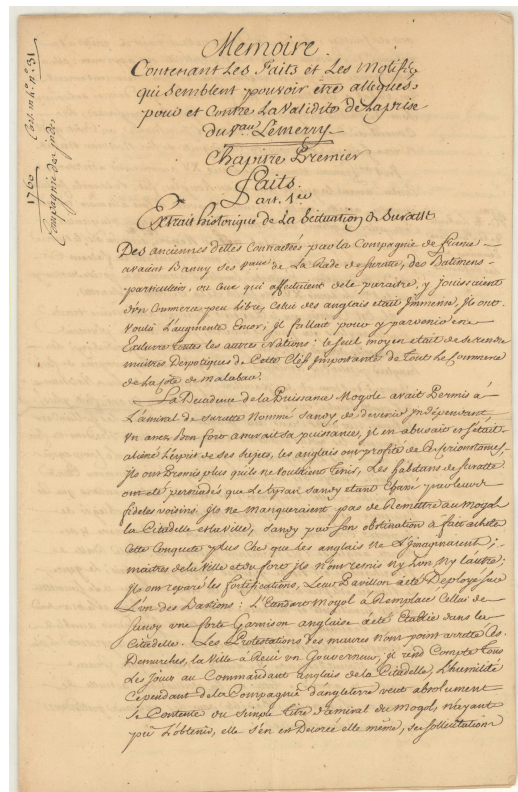 Memoire.
Contenant Les Faits et Les Motifs
qui semblent pouvoir être allegués
pour et Contre La validité de La prise
du Vau Lemerry
Chapitre Premier
faits.
art. 1er
Extrait historique de La Scituation de Suratte
Des anciennes dettes Contractées par la Compagnie de france
avaient Banny ses Vaux de La Rade de Suratte, des Batimens
particuliers, ou Ceux qui affectaient de le paraitre, y jouissaient
d'un Commerce peu Libre, Celui des anglais etait Jmmense, Jls ont
voulu L'augmenter Encor; jl fallait pour y parvenir en
Exclure toutes les autres Nations: le seul moyen etait de se rendre
maitres Depotiques de Cette Clef Jmportante de tout Le Commerce
de La Côte de Malabar.
La Decadence de La Puissance Mogole avait Permis à
L'amiral de Suratte Nommé Sandy de devenir Jndépendant
Un assez bon fort assurait sa puissance, jl en abusait et s'était
aliéné L'esprit de ses sujets, les anglais ont profité de Ces Circonstances,
Jls ont Promis plus qu'ils ne voulaient tenir, Les habitans de Suratte
ont été persuadés que Le tyran Sandy etant Chassé par leurs
fideles voisins Jls ne manqueraient pas de Remettre au mogol
la Citadelle et la Ville, Sandy par son obstination à fait acheter
Cette Conquete plus Cher que Les anglais ne s'jmaginaient;
maitres de la Ville et du fort jls n'ont remis ny L'un ny L'autre;
Jls ont reparé les fortifications, Leur Pavillon a été Deployé sur
L'un des Bastions: L'Etendart Mogol à Remplacé Celui de
Sandy une forte Garnison anglaise a été Etablie dans la
Citadelle. Les Protestations des maures n'ont point arretté Ces
Demarches, la Ville à Reçu un Gouverneur, jl rend Compte tous
Les Jours au Commandant anglais de la Citadelle, L'humilité
Cependant de la Compagnie d'angleterre veut absolument
se Contenter du simple titre d'amiral du Mogol, n'ayant
pu L'obtenir, elle s'en est Decorée elle même, ses sollicitations
1760
Compagnie des jndes
Cart. M h. n° 31